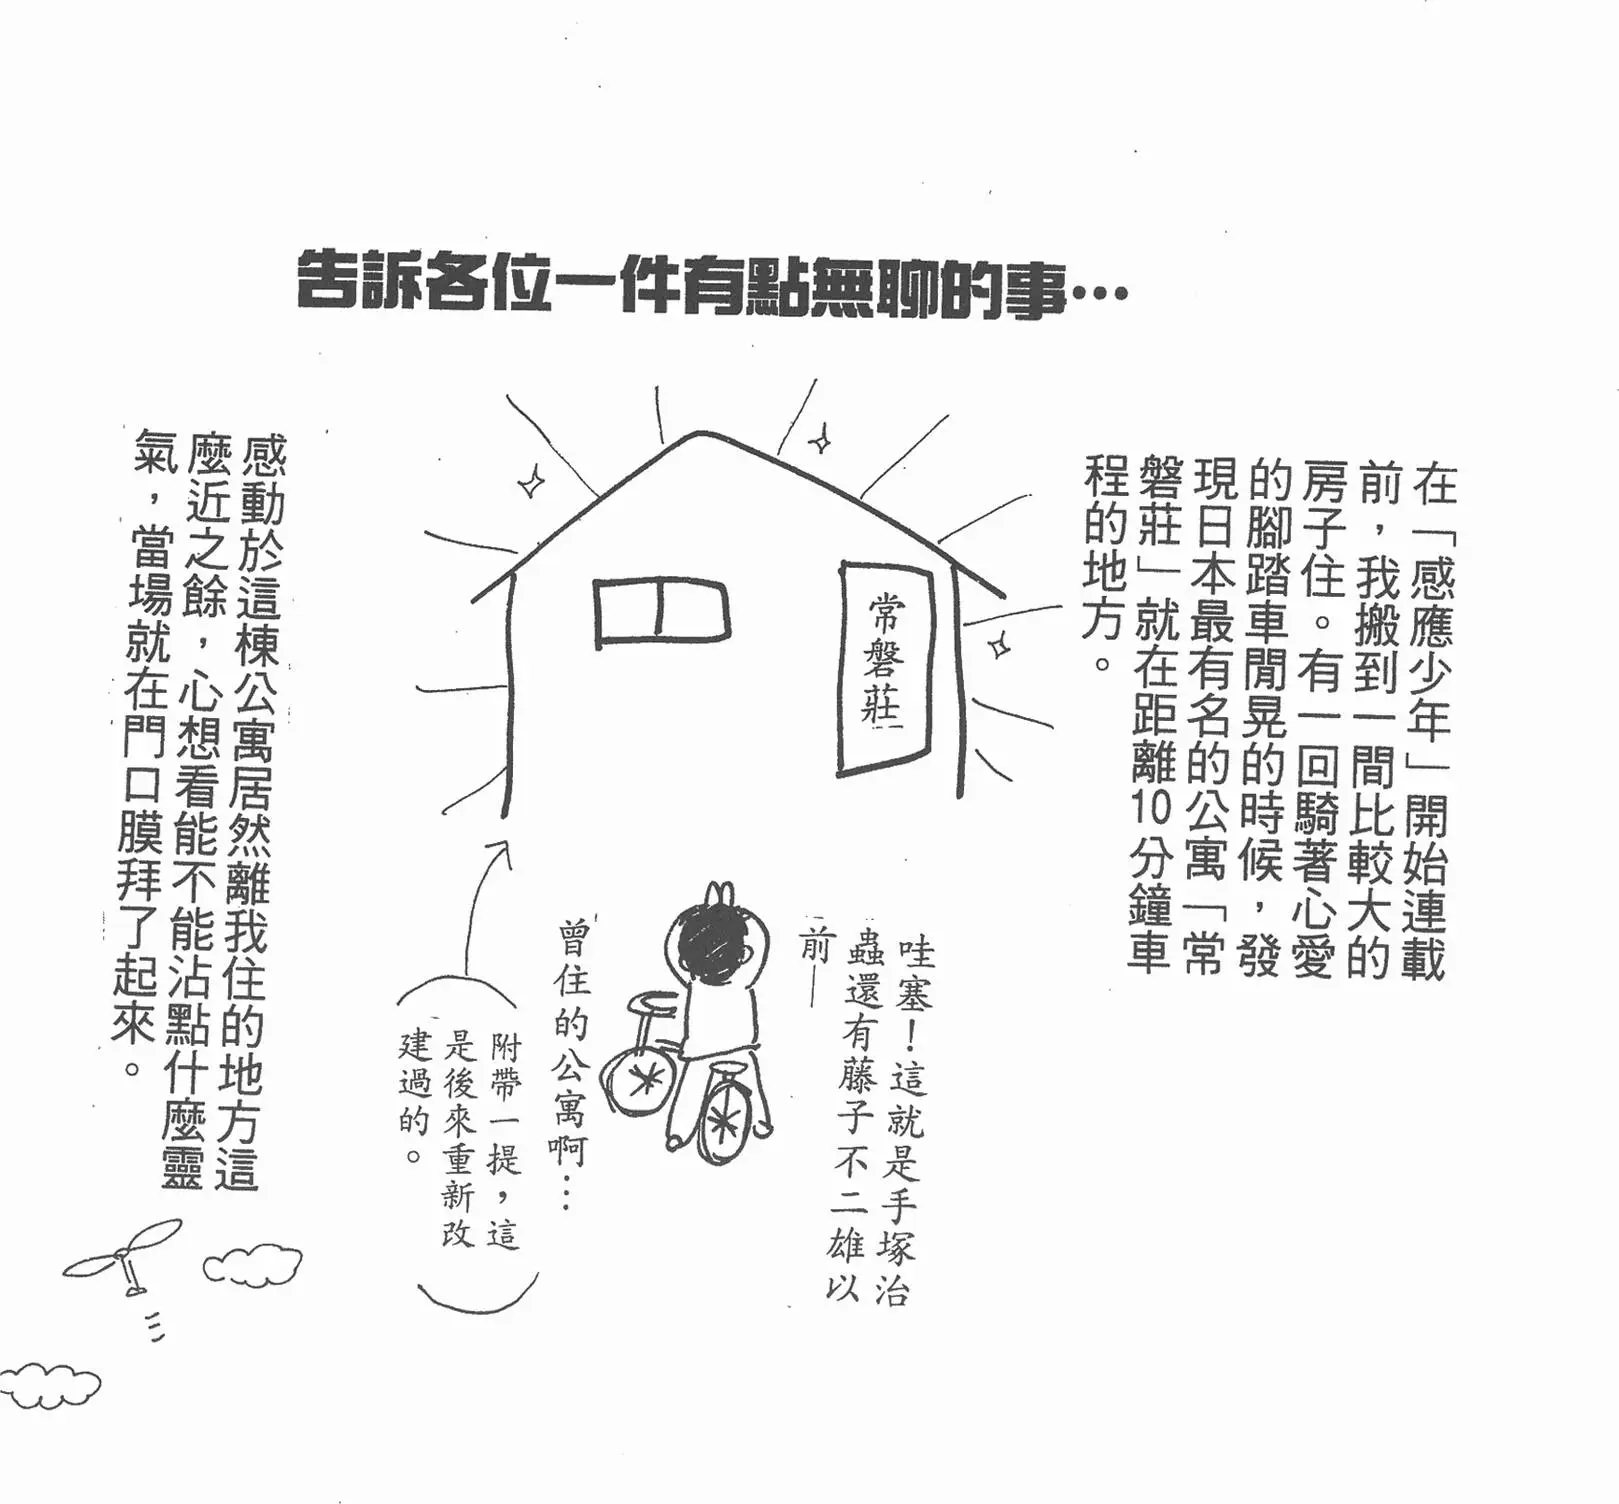 告訴各位一件有點無聊的事…
在「感應少年」開始連載
前，我搬到一間比較大的
房子住。有一回騎著心愛
的腳踏車閒晃的時候，發
現日本最有名的公寓「常
磐莊」就在距離10分鐘車
程的地方。
常磐莊
哇塞！這就是手塚治
蟲還有藤子不二雄以
前—
曾住的公寓啊…
附帶一提，這
是後來重新改
建過的。
感動於這棟公寓居然離我住的地方這
麼近之餘，心想看能不能沾點什麼靈
氣，當場就在門口膜拜了起來。